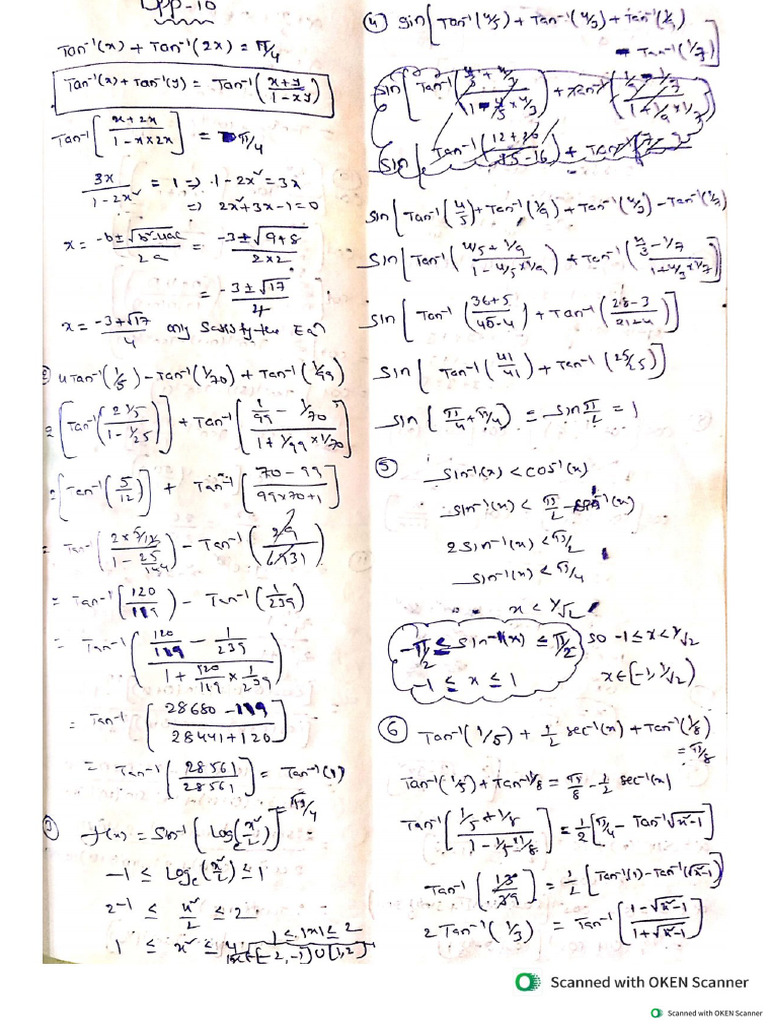 DPP-10
Tan⁻¹(x) + Tan⁻¹(2x) = π/4
Tan⁻¹(x) + Tan⁻¹(y) = Tan⁻¹((x+y)/(1-xy))
Tan⁻¹[(x+2x)/(1-x×2x)] = π/4
3x/(1-2x²) = 1 => 1-2x² = 3x
=> 2x²+3x-1=0
x = (-b±√(b²-4ac))/2a = (-3±√(9+8))/(2×2)
= (-3±√17)/4
x = (-3+√17)/4 only satisfy the Eqn
② 4Tan⁻¹(1/5) - Tan⁻¹(1/70) + Tan⁻¹(1/99)
= [Tan⁻¹(2 1/5)/(1-1/25)] + Tan⁻¹[(1/99 - 1/70)/(1+1/99×1/70)]
= [Tan⁻¹(5/12)] + Tan⁻¹[(70-99)/(99×70+1)]
= Tan⁻¹((2×5/12)/(1-25/144)) - Tan⁻¹(29/6931)
= Tan⁻¹(120/119) - Tan⁻¹(1/239)
= Tan⁻¹((120/119 - 1/239)/(1+120/119×1/239))
= Tan⁻¹[(28680-119)/(28441+120)]
= Tan⁻¹[28561/28561] = Tan⁻¹(1)
= π/4
③ f(x) = Sin⁻¹[Logₑ(x²/2)]
-1 ≤ Logₑ(x²/2) ≤ 1
2⁻¹ ≤ x²/2 ≤ 2
1 ≤ x² ≤ 4
1 ≤ |x| ≤ 2
x∈[-2,-1]∪[1,2]
④ sin[Tan⁻¹(4/5) + Tan⁻¹(4/3) + Tan⁻¹(1/9)
- Tan⁻¹(1/7)]
sin[Tan⁻¹((4/5+4/3)/(1-4/5×4/3)) + Tan⁻¹((1/9-1/7)/(1+1/9×1/7))]
sin[Tan⁻¹((12+20)/(15-16)) + Tan⁻¹
sin[Tan⁻¹(4/5) + Tan⁻¹(1/9) + Tan⁻¹(4/3) - Tan⁻¹(1/7)
sin[Tan⁻¹((4/5+1/9)/(1-4/5×1/9)) + Tan⁻¹((4/3-1/7)/(1+4/3×1/7))]
sin[Tan⁻¹((36+5)/(45-4)) + Tan⁻¹((28-3)/(21+4))]
sin[Tan⁻¹(41/41) + Tan⁻¹(25/25)]
sin[π/4+π/4) = sin π/2 = 1
⑤ sin⁻¹(x) < cos⁻¹(x)
sin⁻¹(x) < π/2 - sin⁻¹(x)
2sin⁻¹(x) < π/2
sin⁻¹(x) < π/4
∴ x < 1/√2
-π/2 ≤ sin⁻¹(x) ≤ π/2 so -1≤x<1/√2
-1 ≤ x ≤ 1 x∈[-1,1/√2)
⑥ Tan⁻¹(1/5) + 1/2 sec⁻¹(x) + Tan⁻¹(1/8)
= π/8
Tan⁻¹(1/5) + Tan⁻¹1/8 = π/8 - 1/2 sec⁻¹(x)
Tan⁻¹[(1/5+1/8)/(1-1/5×1/8)] = 1/2[π/4 - Tan⁻¹√(x²-1)]
Tan⁻¹[13/39] = 1/2[Tan⁻¹(1) - Tan⁻¹(√x²-1)]
2Tan⁻¹(1/3) = Tan⁻¹[(1-√(x²-1))/(1+√(x²-1))]
Scanned with OKEN Scanner
Scanned with OKEN Scanner